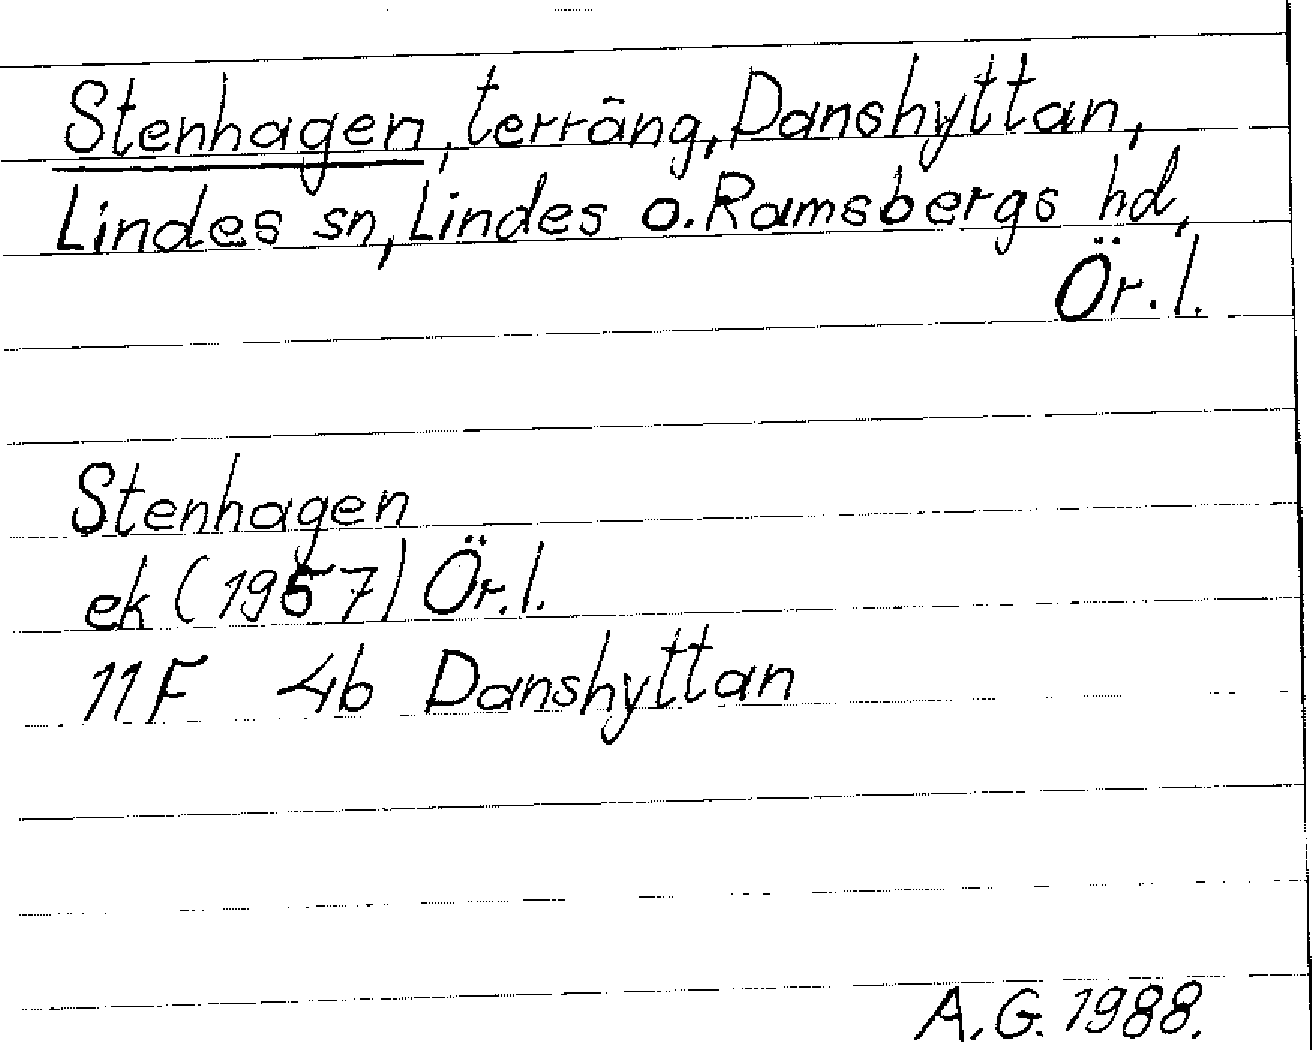 Stenhagen, terräng, Danshyttan,
Lindes sn, Lindes o. Ramsbergs hd,
Ör. l.
Stenhagen
ek (1957) Ör. l.
11F 4b Danshyttan
A.G. 1988.